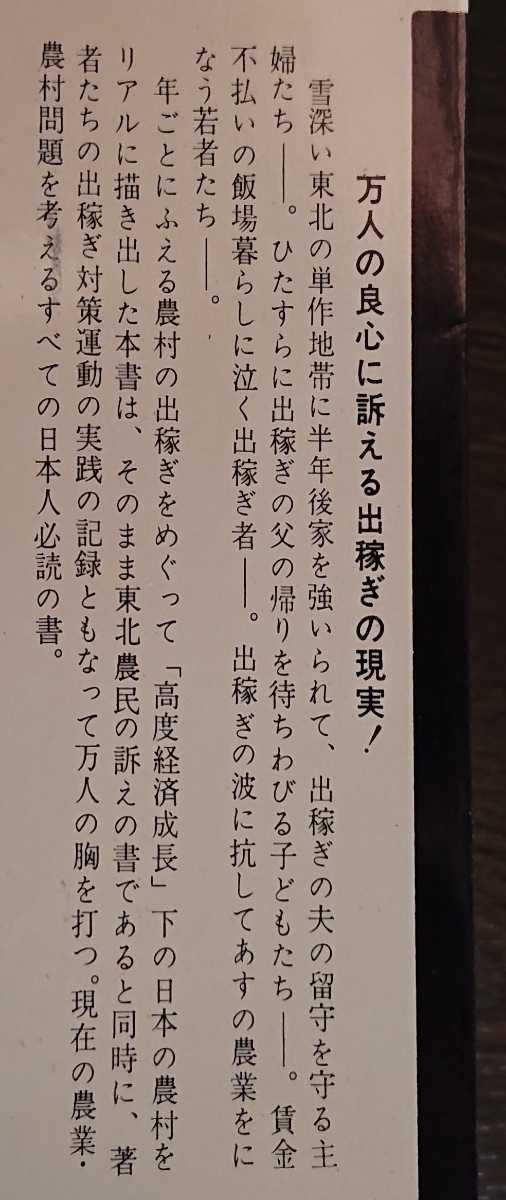 万人の良心に訴える出稼ぎの現実！
雪深い東北の単作地帯に半年後家を強いられて、出稼ぎの夫の留守を守る主
婦たち——。ひたすらに出稼ぎの父の帰りを待ちわびる子どもたち——。賃金
不払いの飯場暮らしに泣く出稼ぎ者——。出稼ぎの波に抗してあすの農業をに
なう若者たち——。
年ごとにふえる農村の出稼ぎをめぐって「高度経済成長」下の日本の農村を
リアルに描き出した本書は、そのまま東北農民の訴えの書であると同時に、著
者たちの出稼ぎ対策運動の実践の記録ともなって万人の胸を打つ。現在の農業・
農村問題を考えるすべての日本人必読の書。